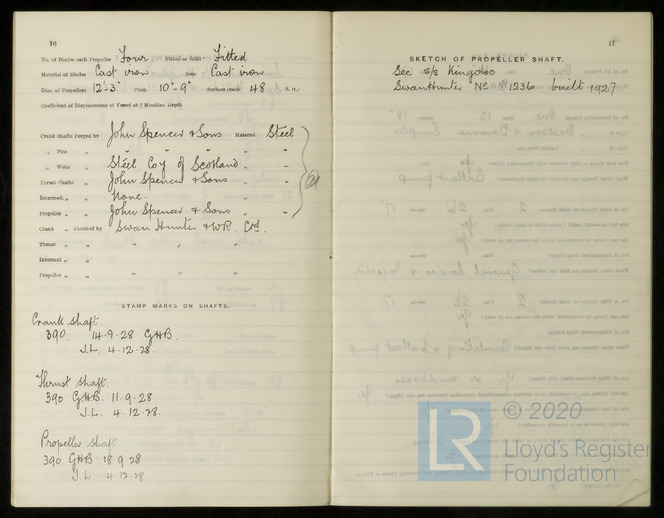 10
No. of Blades each Propeller Four Fitted or Solid? Fitted
Material of Blades Cast iron Boss Cast iron
Diar. of Propellers 12'-3" Pitch 10'-9" Surface (each) 48 S. ft.)
Coefficient of Displacement of Vessel at ¾ Moulded Depth
Crank Shafts Forged by John Spencer & Sons Material Steel
„ Pins „ „ „
„ Webs „ Steel Coy of Scotland „ „
Thrust Shafts „ John Spencer & Sons „ „
Intermed. „ „ None „
Propeller „ „ John Spencer & Sons „ „
Crank „ Finished by Swan Hunter & W.R. Ltd.
Thrust „ „ „ „
Intermed. „ „
Propeller „ „ „ „
STAMP MARKS ON SHAFTS.
Crank shaft.
390 14.9.28 GHB.
J.L. 4.12.28.
Thrust shaft.
390 GHB. 11.9.28
J.L. 4.12.28.
Propeller shaft
390 GHB 18.9.28
J.L. 4.12.28.
11
SKETCH OF PROPELLER SHAFT.
See s/s Kingdoc
Swan Hunter No 1236 built 1927
LR © 2020
Lloyd's Register
Foundation